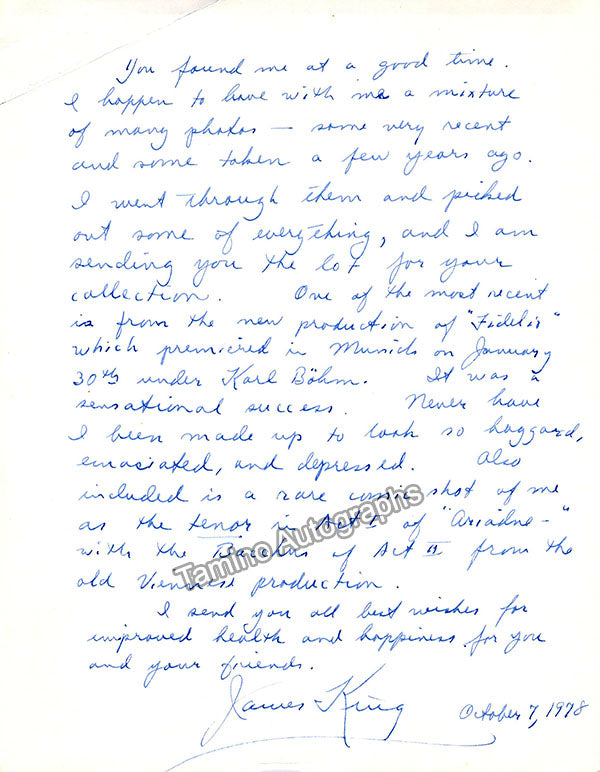 You found me at a good time.
I happen to have with me a mixture
of many photos — some very recent
and some taken a few years ago.
I went through them and picked
out some of everything, and I am
sending you the lot for your
collection. One of the most recent
is from the new production of "Fidelio"
which premiered in Munich on January
30th under Karl Böhm. It was a
sensational success. Never have
I been made up to look so haggard,
emaciated, and depressed. Also
included is a rare comic shot of me
as the tenor in Act I of "Ariadne-"
with the Bacchus of Act II from the
old Viennese production.
I send you all best wishes for
improved health and happiness for you
and your friends.
James King October 7, 1978
Tamino Autographs